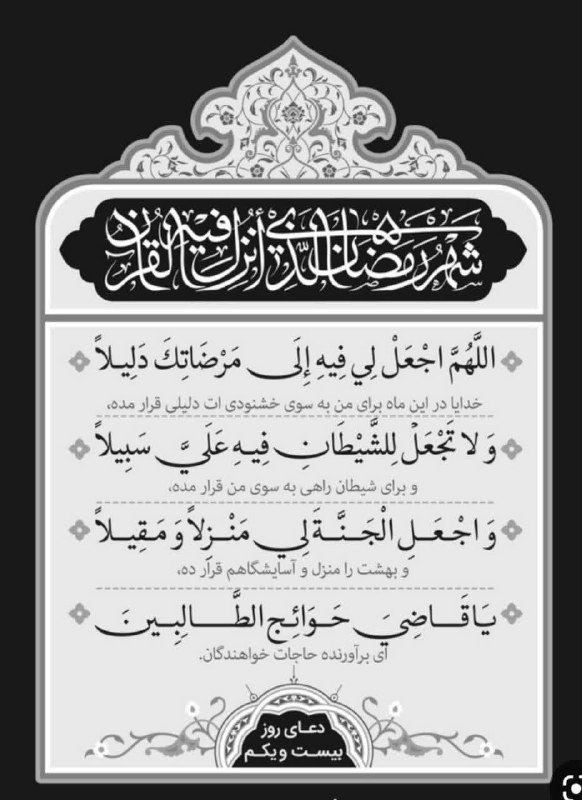 شَهْرُ رَمَضَانَ الَّذِي أُنْزِلَ فِيهِ الْقُرْآنُ
اللَّهُمَّ اجْعَلْ لِي فِيهِ إِلَى مَرْضَاتِكَ دَلِيلاً
خدایا در این ماه برای من به سوی خشنودی ات دلیلی قرار مده،
وَ لا تَجْعَلْ لِلشَّيْطَانِ فِيهِ عَلَيَّ سَبِيلاً
و برای شیطان راهی به سوی من قرار مده،
وَ اجْعَلِ الْجَنَّةَ لِي مَنْزِلاً وَ مَقِيلاً
و بهشت را منزل و آسایشگاهم قرار ده،
يَا قَاضِيَ حَوَائِجِ الطَّالِبِينَ
ای برآورنده حاجات خواهندگان.
دعای روز
بیست و یکم